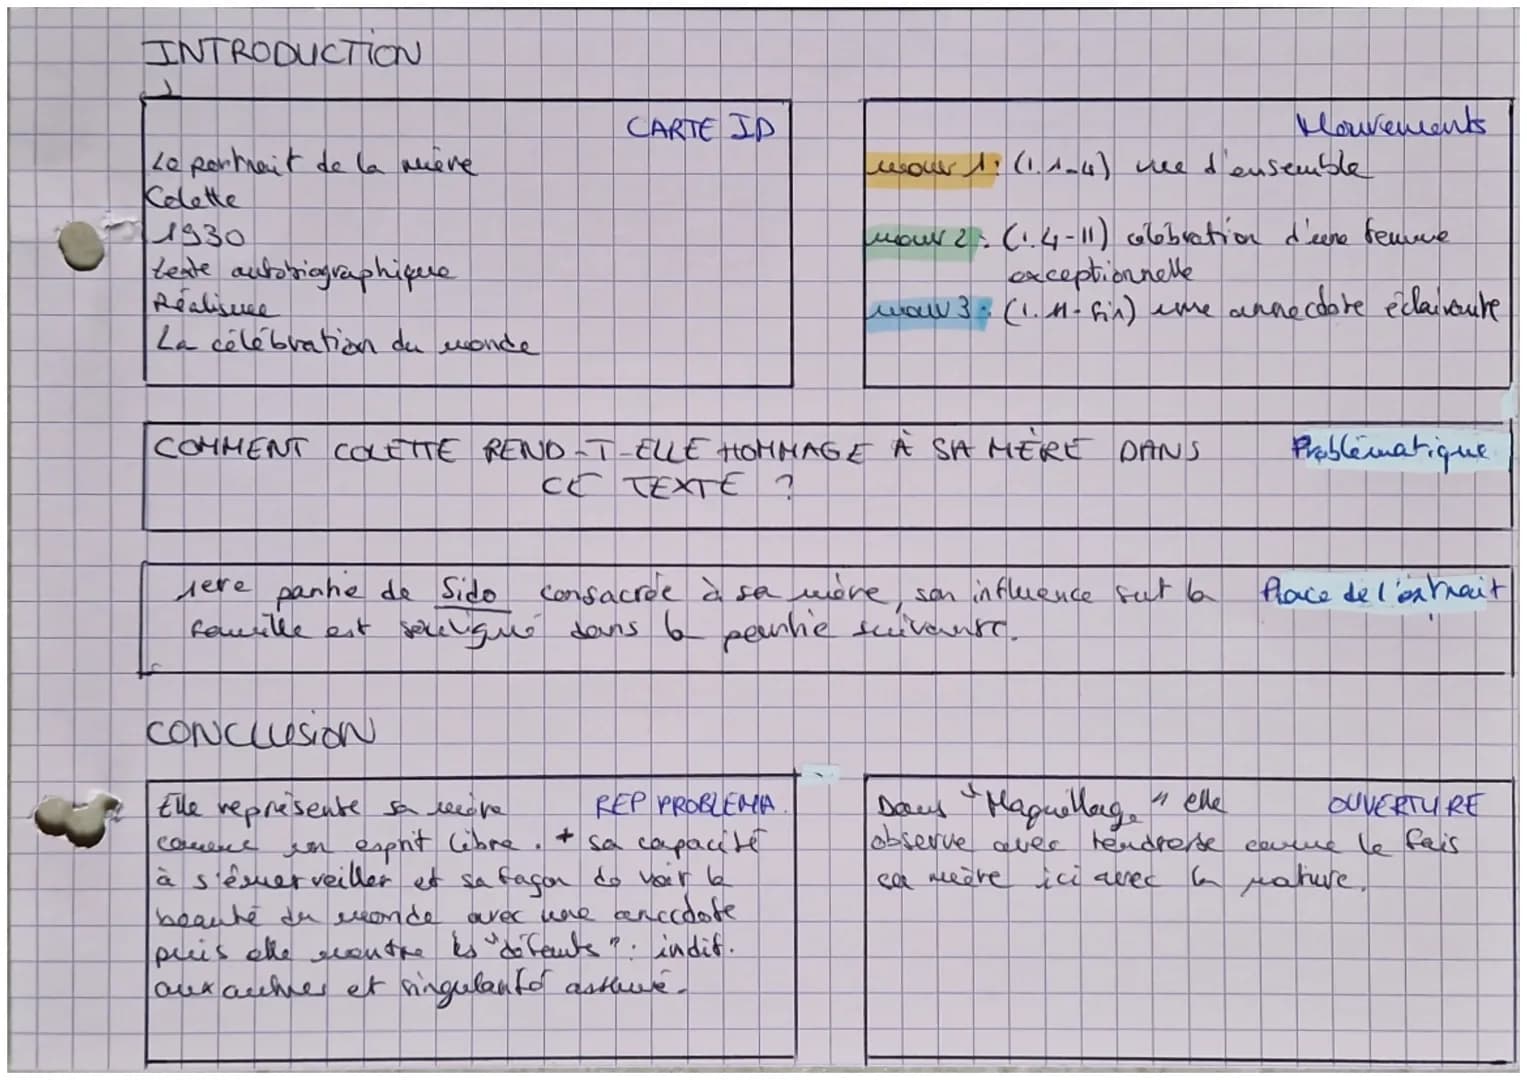 INTRODUCTION
CARTE ID
Le portrait de la mère
Colette
1930
texte autobiographique
Réalisme
La célébration du monde
Mouvements
mouv 1: (l.1-4) vue d'ensemble
mouv 2: (l.4-11) célébration d'une femme
exceptionnelle
mouv 3: (l.11-fin) une annecdote éclairante
COMMENT COLETTE REND-T-ELLE HOMMAGE À SA MÈRE DANS
CE TEXTE ?
Problématique
1ere partie de Sido consacrée à sa mère, son influence sur la
famille est souligné dans la partie suivante.
Place de l'extrait
CONCLUSION
REP PROBLEMA.
Elle représente sa mère
comme un esprit libre. + sa capacité
à s'émerveiller et sa façon de voir la
beauté du monde avec une anecdote
puis elle montre les "défauts": indif.
aux autres et singularité assumé.
OUVERTURE
Dans "Maquillage" elle
observe avec tendresse comme le fais
sa mère ici avec la nature.